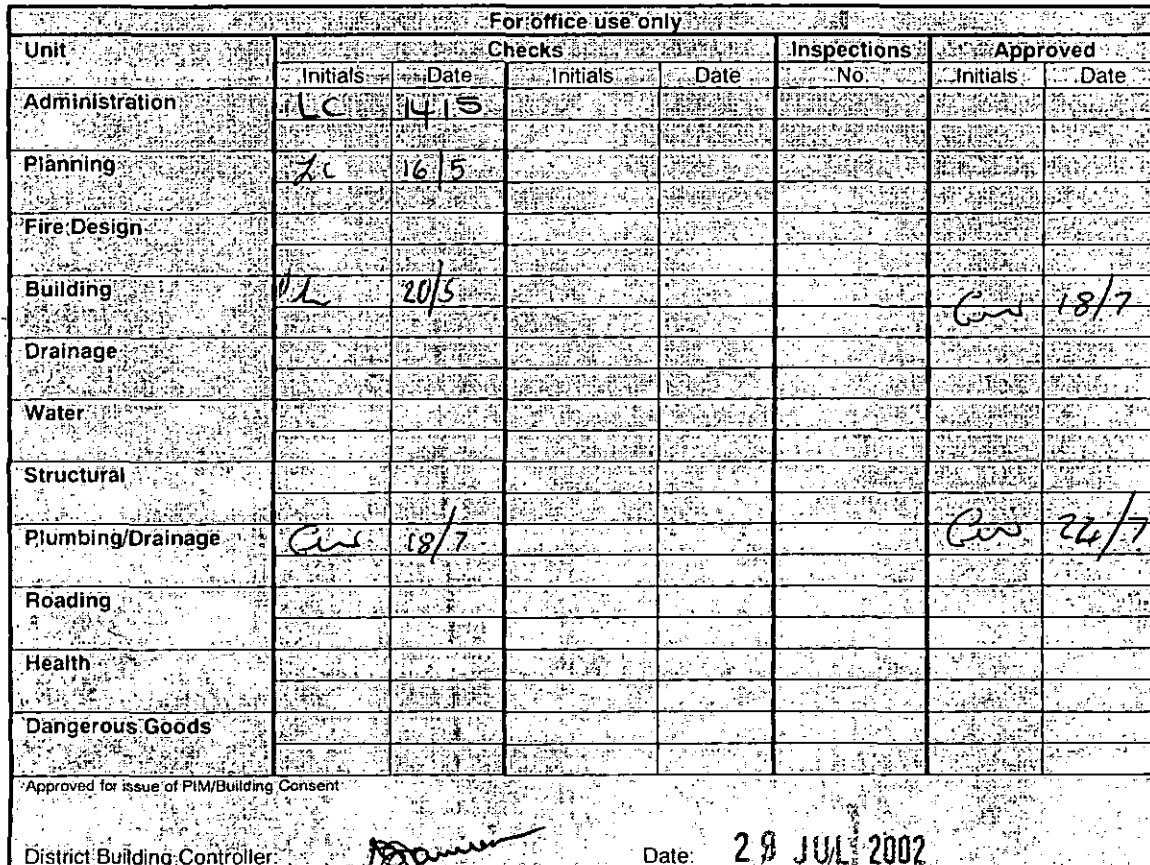 For office use only
Unit Checks Inspections Approved
Initials Date Initials Date No. Initials Date
Administration LC 14/5
Planning LC 16/5
Fire Design
Building 20/5 18/7
Drainage
Water
Structural
Plumbing/Drainage 18/7 22/7
Roading
Health
Dangerous Goods
Approved for issue of PIM/Building Consent
District Building Controller: Date: 29 JUL 2002